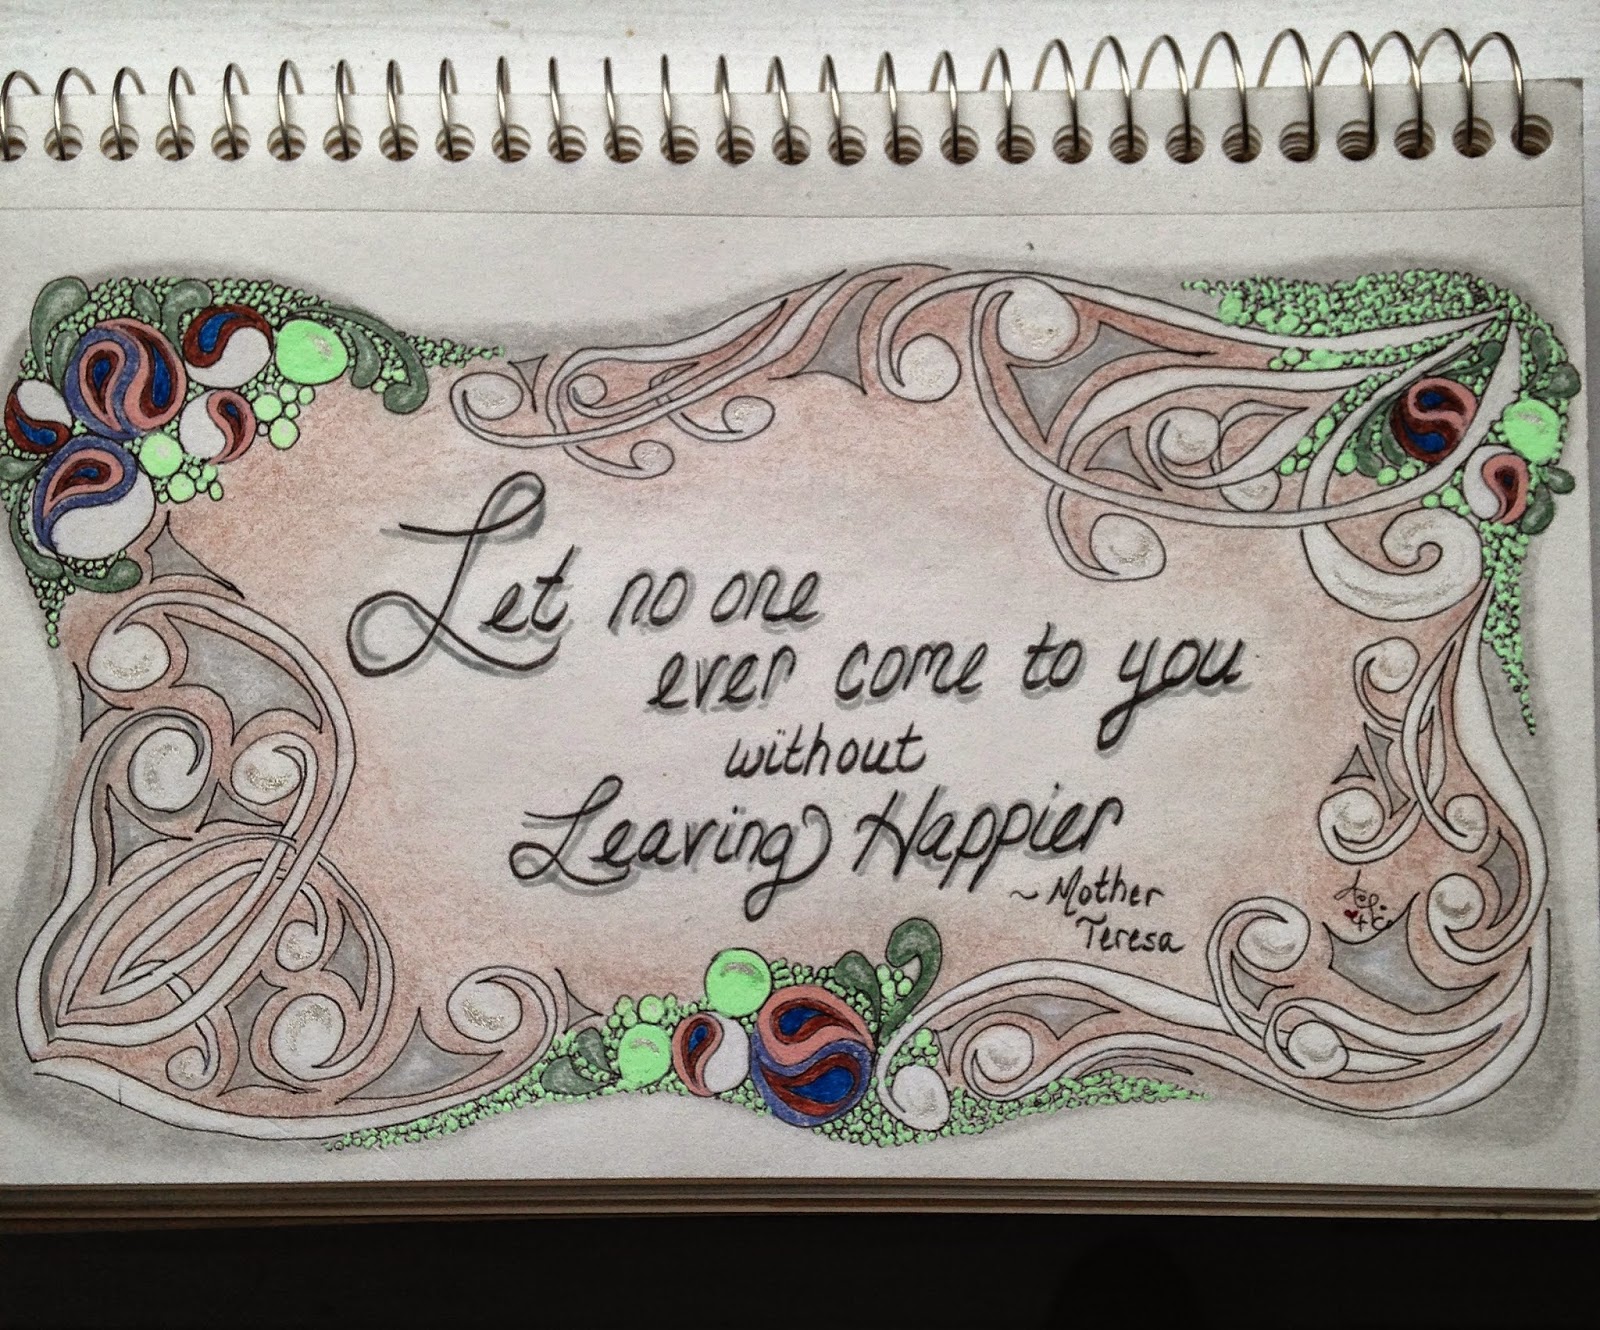 Let no one
ever come to you
without
Leaving Happier
~ Mother
Teresa